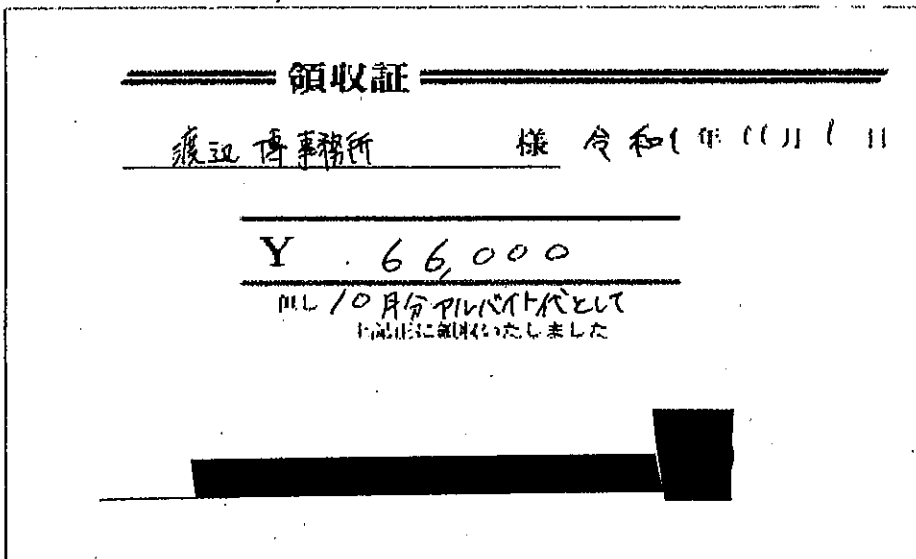 領収証
渡辺博事務所 様 令和1年11月1日
¥ 66,000
但し10月分アルバイト代として
上記正に領収いたしました